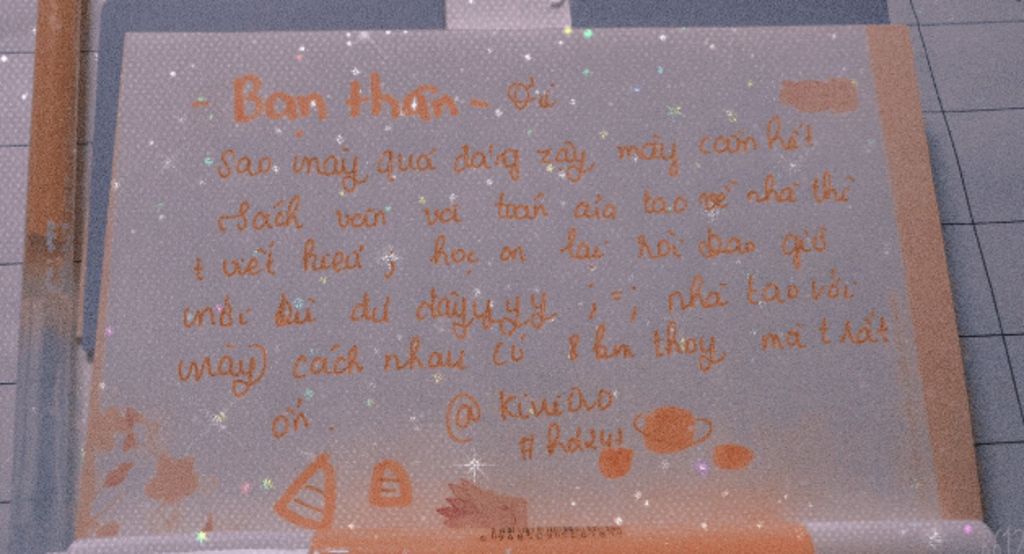 - Bạn thân - Ơi
Sao mày quá đáng zậy, mày cầm hết
sách văn và toán của tao về nhà thì
t viết kiểu j, học ôn lại rồi bao giờ
mới đi dự đâyyyy ;-; nhà tao với
mày cách nhau có 8 km thoy mà t rất
ổn.
@ Kiwioo
# hd24